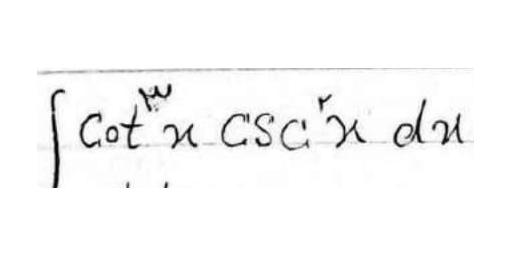 ∫ Cot^۳ x csc^۲ x dx